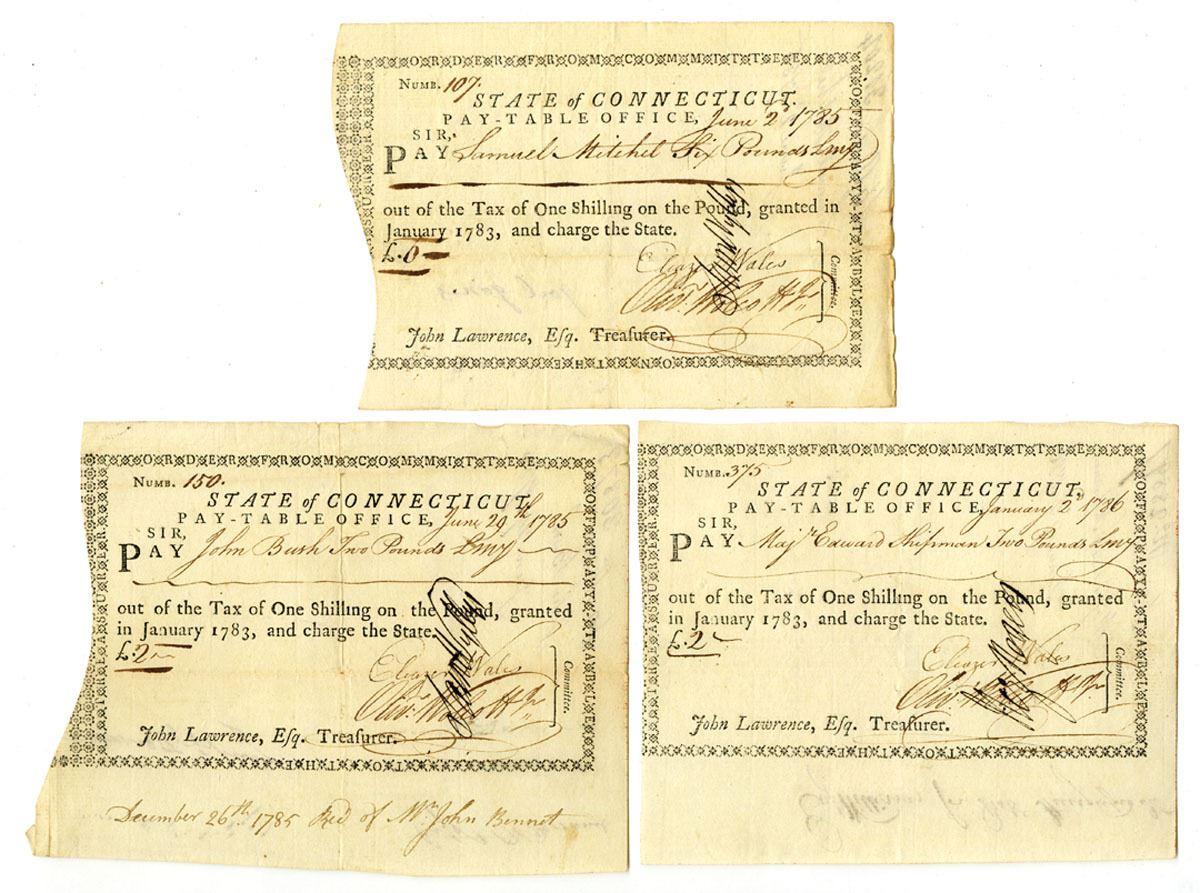 ORDER FROM COMMITTEE
OF PAY-TABLE
ON THE
TREASURER
NUMB. 107.
STATE of CONNECTICUT.
PAY-TABLE OFFICE, June 2d 1785
SIR,
PAY Samuel Mitchel Six Pounds Lmy
out of the Tax of One Shilling on the Pound, granted in
January 1783, and charge the State.
£.6
Eleazer Wales
Olivr. Wolcott Jr.
Committee.
John Lawrence, Esq. Treaſurer.
ORDER FROM COMMITTEE
OF PAY-TABLE
TO THE
TREASURER
NUMB. 150.
STATE of CONNECTICUT,
PAY-TABLE OFFICE, June 29th 1785
SIR,
PAY John Bush Two Pounds Lmy
out of the Tax of One Shilling on the Pound, granted
in January 1783, and charge the State.
£.2
Eleazer Wales
Olivr. Wolcott Jr.
Committee.
John Lawrence, Esq. Treaſurer.
December 26th 1785 Recd of Mr John Bennet
ORDER FROM COMMITTEE
OF PAY-TABLE
TO THE
TREASURER
NUMB. 375
STATE of CONNECTICUT,
PAY-TABLE OFFICE, January 2d 1786
SIR,
PAY Majr Edward Shipman Two Pounds Lmy
out of the Tax of One Shilling on the Pound, granted
in January 1783, and charge the State.
£.2
Eleazer Wales
Olivr. Wolcott Jr.
Committee.
John Lawrence, Esq. Treaſurer.